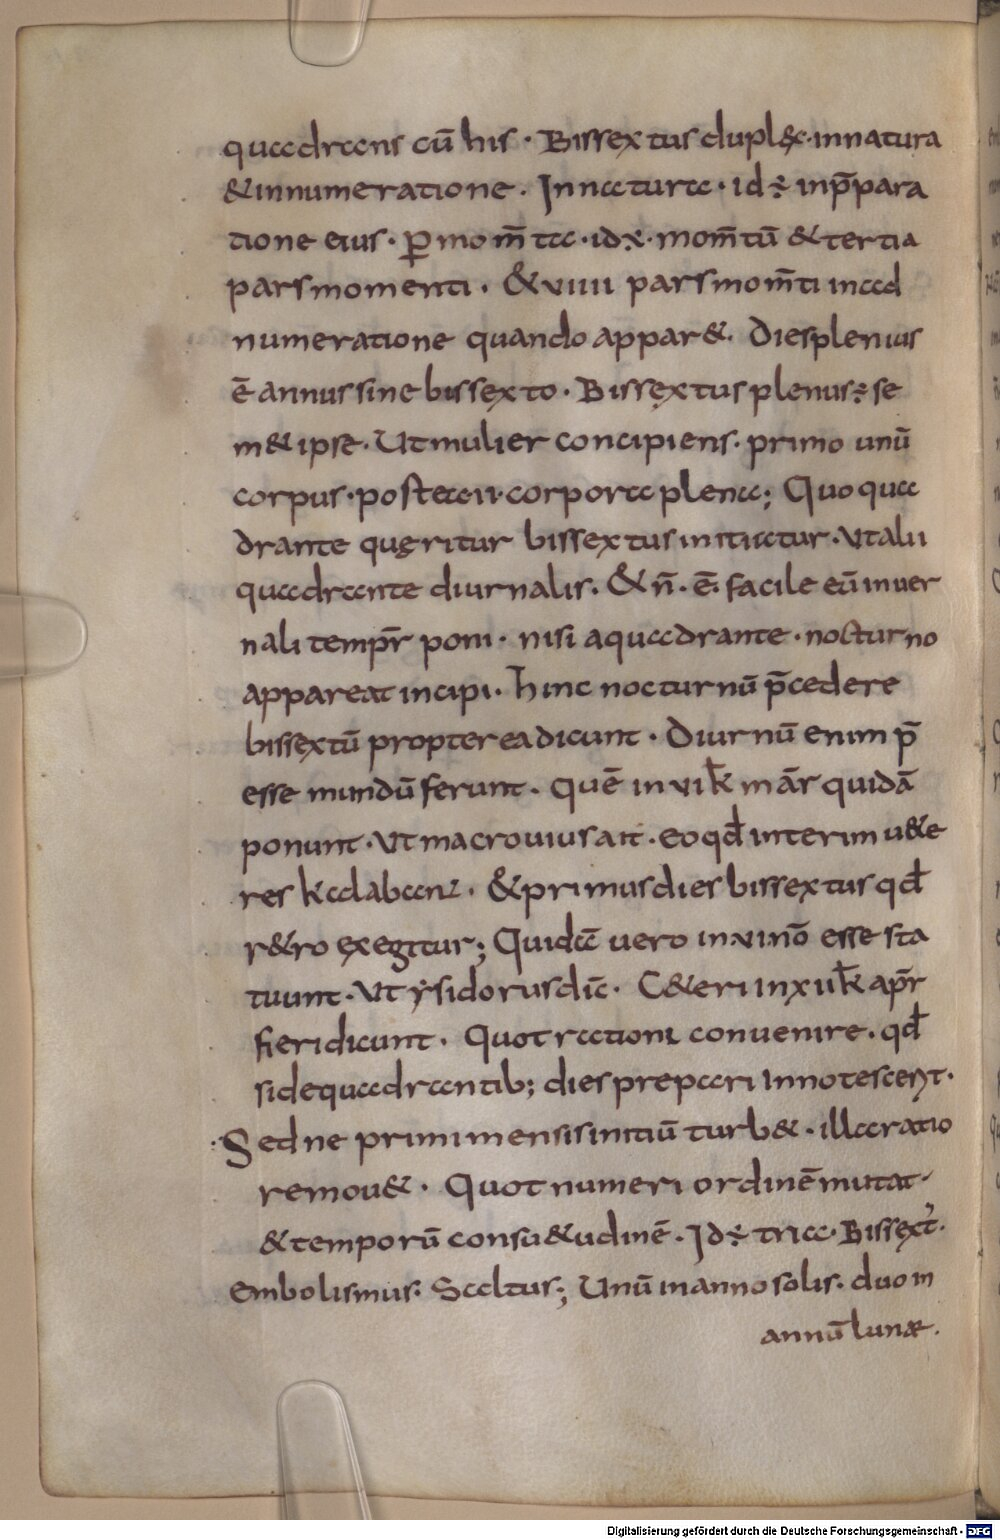 quadrans cū his · Bissextus duplex · in natura
& in numeratione · In natura · id ÷ in p̄para
tione eius · ꝑ mom̄ta · id · x · mom̄tū & tertia
pars momenti · & viiii pars mom̄ti in ad
numeratione quando appar& · Dies plenius
ē annus sine bissexto · Bissextus plenus ÷ se
m& ipse · Ut mulier concipiens · primo unū
corpus · postea · ii · corpora plena ; Quo qua
drante quęritur bissextus initiatur · Ut alii
quadrante diurnalis · & n̄ · ē · facile eū in ver
nali tempr̄ poni · nisi a quadrante · nocturno
appareat incipi · hinc nocturnū p̄cedere
bissextū propterea dicunt · Diurnū enim p̄
esse mundū ferunt · Quē in vi k̄ mār quidā
ponunt · Ut macrovius ait · eo qđ interim u&e
res kalabant · & primus dies bissextus qđ
r&ro exegitur ; Quidā vero in · vi nō esse sta
tuunt · Ut ysidorus dic̄ · C&eri in x ii k̄ apr̄
fieri dicunt · Quot rationi convenire · qđ
si de quadrantib; dies prepari innotescent ·
· Sed ne primi mensis initiū turb& · illa ratio
remou& · Quot numeri ordinē mutat ·
& temporū consu&udinē · Id ÷ tria · Bissext̄ ·
Embolismus · Saltus ; Unū in anno solis · duo in
annū lunæ ·
Digitalisierung gefördert durch die Deutsche Forschungsgemeinschaft - DFG